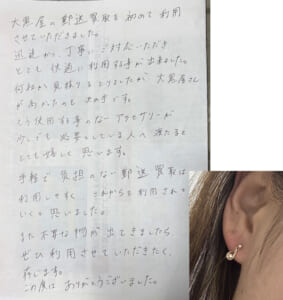 大黒屋の郵送買取を初めて利用
させていただきました。
迅速かつ丁寧にご対応いただき
とても快適に利用する事が出来ました。
何社か見積りをとりましたが、大黒屋さん
が高かったのも決め手です。
もう使用する事のないアクセサリーが
少しでも必要としている人へ渡ると
とても嬉しく思います。
手軽で負担のない郵送買取は
利用しやすく、これからも利用されて
いくと思いました。
また不要な物が出てきましたら
ぜひ利用させていただきたく
存じます。
この度はありがとうございました。